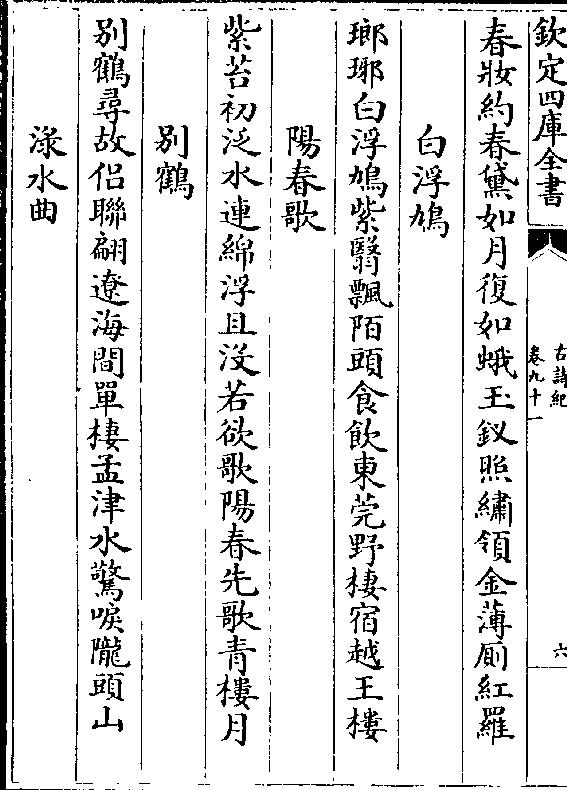 欽定四庫全書
古詩紀
卷九十一
六
春妝約春黛如月復如蛾玉釵照繡領金薄廁紅羅
白浮鳩
瑯琊白浮鳩紫翳飄陌頭食飲東莞野棲宿越王樓
陽春歌
紫苔初泛水連綿浮且沒若欲歌陽春先歌青樓月
别鶴
别鶴尋故侣聯翩遼海間單棲孟津水驚唳隴頭山
渌水曲